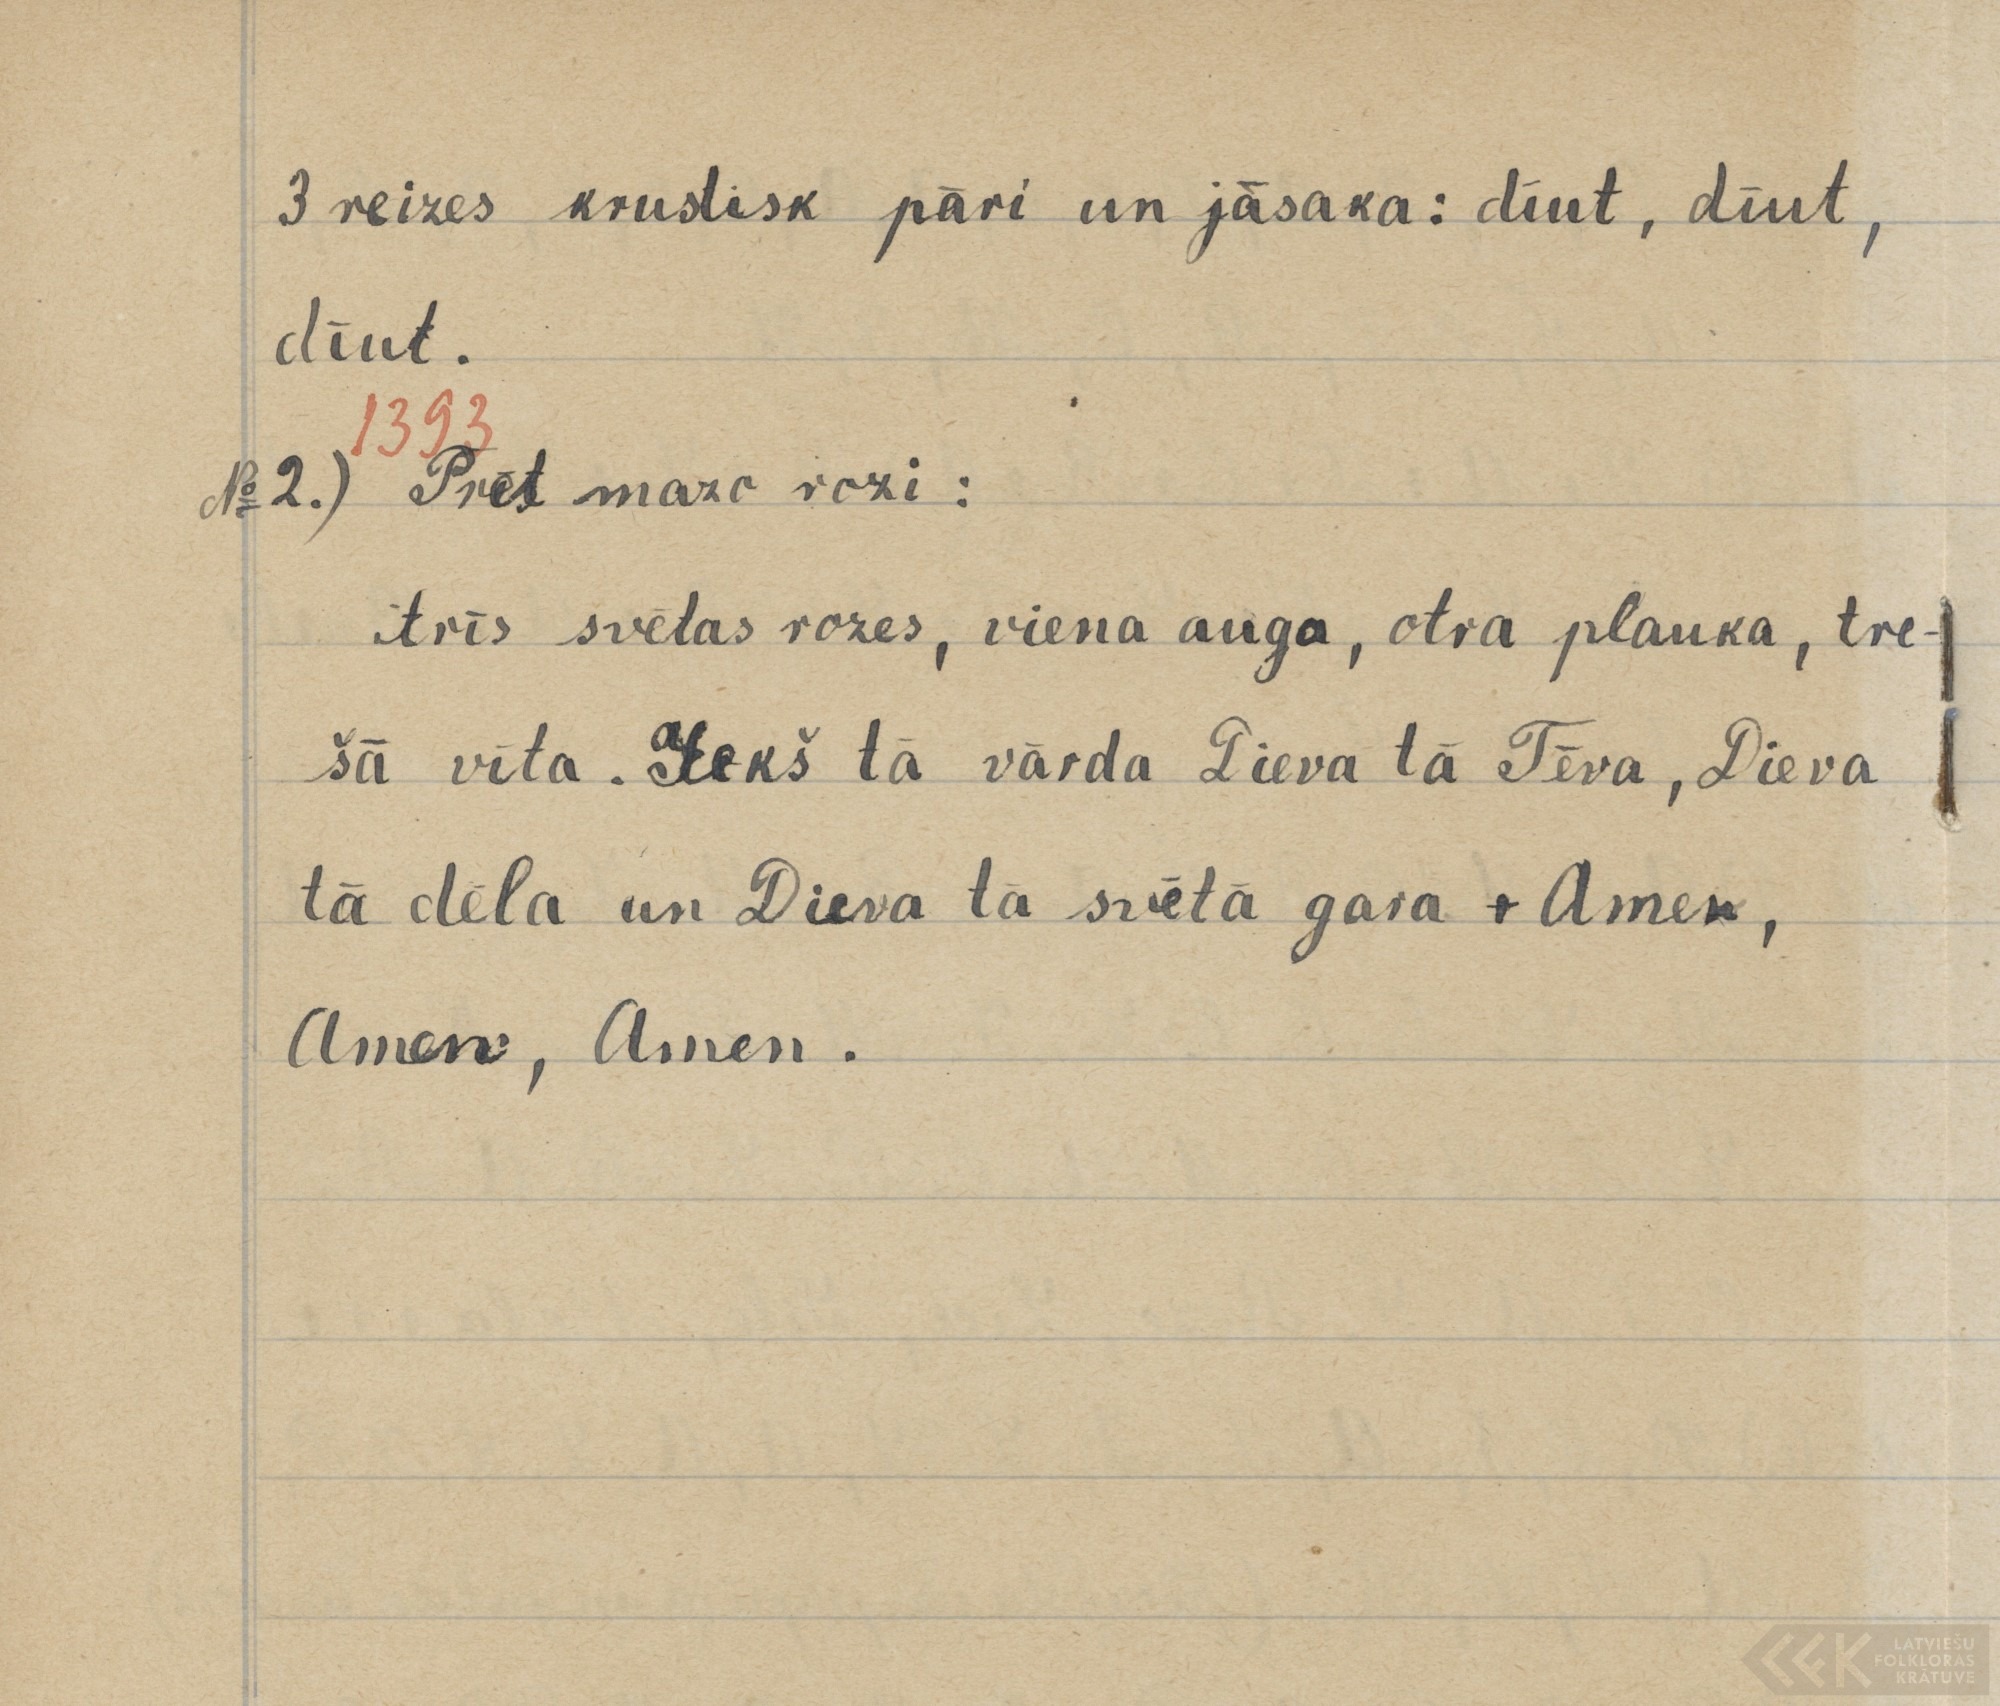 3 reizes krustisk pāri un jāsaka: dīut, dīut,
dīut.
1393
№ 2.) Prēt mazo rozi:
itrīs svētas rozes, viena auga, otra plauka, tre-
šā vīta. Iekš tā vārda Dieva tā Tēva, Dieva
tā dēla un Dieva tā svētā gara + Amen,
Amen, Amen.
LATVIEŠU
FOLKLORAS
KRĀTUVE